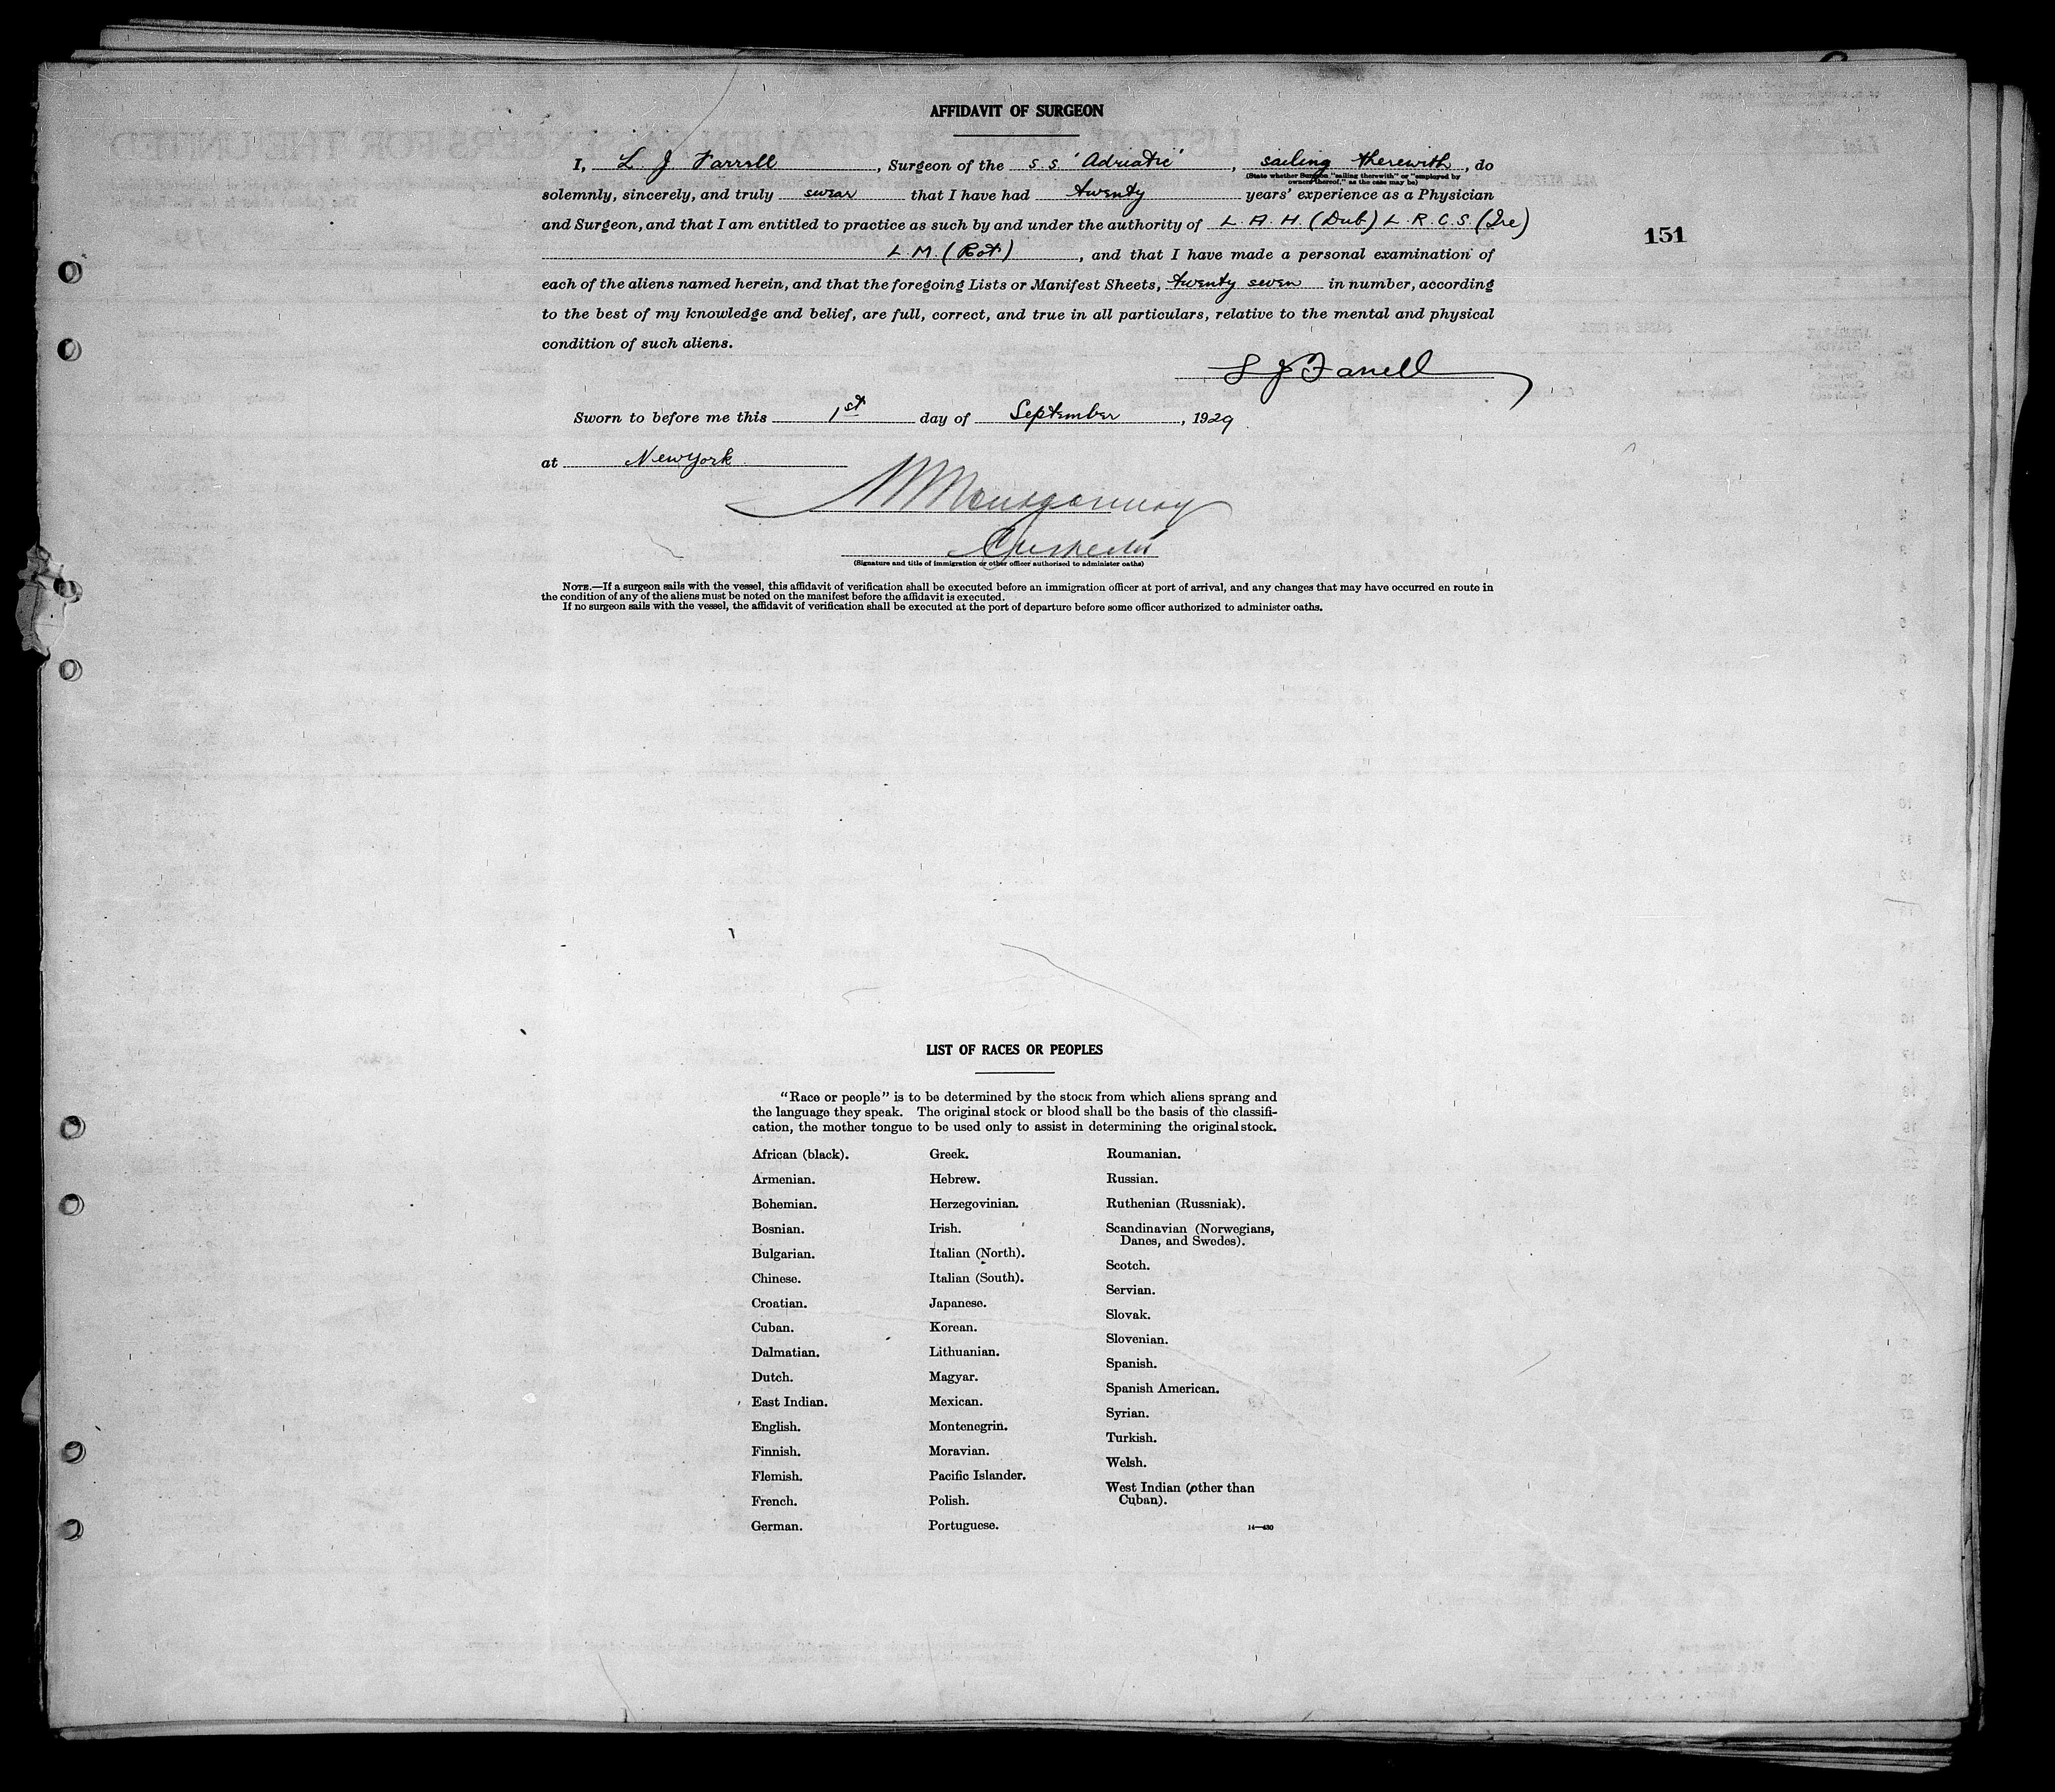 AFFIDAVIT OF SURGEON
I, L J Farrell, Surgeon of the S.S. 'Adriatic', sailing therewith, do
(State whether Surgeon "sailing therewith" or "employed by
owners thereof," as the case may be)
solemnly, sincerely, and truly swear that I have had twenty years' experience as a Physician
and Surgeon, and that I am entitled to practice as such by and under the authority of L. A. H. (Dub) L. R. C. S. (Ire)
151
L. M. (Rot), and that I have made a personal examination of
each of the aliens named herein, and that the foregoing Lists or Manifest Sheets, twenty seven in number, according
to the best of my knowledge and belief, are full, correct, and true in all particulars, relative to the mental and physical
condition of such aliens.
L J Farrell
Sworn to before me this 1st day of September, 1929
at New York
Montgomery
Inspector
(Signature and title of immigration or other officer authorized to administer oaths)
NOTE.—If a surgeon sails with the vessel, this affidavit of verification shall be executed before an immigration officer at port of arrival, and any changes that may have occurred en route in
the condition of any of the aliens must be noted on the manifest before the affidavit is executed.
If no surgeon sails with the vessel, the affidavit of verification shall be executed at the port of departure before some officer authorized to administer oaths.
LIST OF RACES OR PEOPLES
"Race or people" is to be determined by the stock from which aliens sprang and
the language they speak. The original stock or blood shall be the basis of the classifi-
cation, the mother tongue to be used only to assist in determining the original stock.
African (black).
Armenian.
Bohemian.
Bosnian.
Bulgarian.
Chinese.
Croatian.
Cuban.
Dalmatian.
Dutch.
East Indian.
English.
Finnish.
Flemish.
French.
German.
Greek.
Hebrew.
Herzegovinian.
Irish.
Italian (North).
Italian (South).
Japanese.
Korean.
Lithuanian.
Magyar.
Mexican.
Montenegrin.
Moravian.
Pacific Islander.
Polish.
Portuguese.
Roumanian.
Russian.
Ruthenian (Russniak).
Scandinavian (Norwegians,
Danes, and Swedes).
Scotch.
Servian.
Slovak.
Slovenian.
Spanish.
Spanish American.
Syrian.
Turkish.
Welsh.
West Indian (other than
Cuban).
14—430